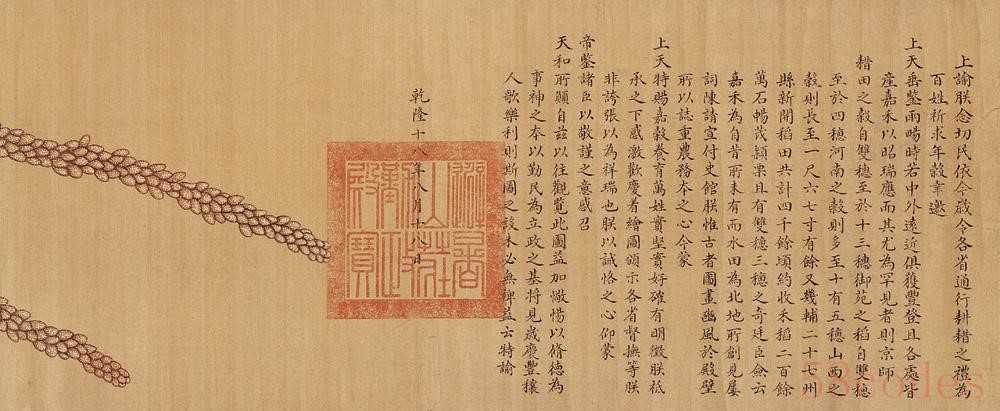 上諭朕念切民依今歲令各省通行耕耤之禮為
百姓祈求年穀幸邀
上天垂鑒雨暘時若中外遠近俱獲豐登且各處皆
產嘉禾以昭瑞應而其尤為罕見者則京師
耤田之穀自雙穗至於十三穗御苑之稻自雙穗
至於四穗河南之穀則多至十有五穗山西之
穀則長至一尺六七寸有餘又畿輔二十七州
縣新開稻田共計四千餘頃約收禾稻二百餘
萬石暢茂穎栗且有雙穗三穗之奇廷臣僉云
嘉禾為自昔所未有而水田為北地所創見屢
詞陳請宣付史館朕惟古者圖畫豳風於殿壁
所以誌重農務本之心今蒙
上天特賜嘉穀養育萬姓實堅實好確有明徵朕祇
承之下感激歡慶着繪圖頒示各省督撫等朕
非誇張以為祥瑞也朕以誠恪之心仰蒙
帝鑒諸臣以敬謹之意感召
天和所願自茲以往觀覽此圖益加儆惕以脩德為
事神之本以勤民為立政之基將見歲慶豐穰
人歌樂利則斯圖之設未必無裨益云特諭
乾隆十八年八月十八日